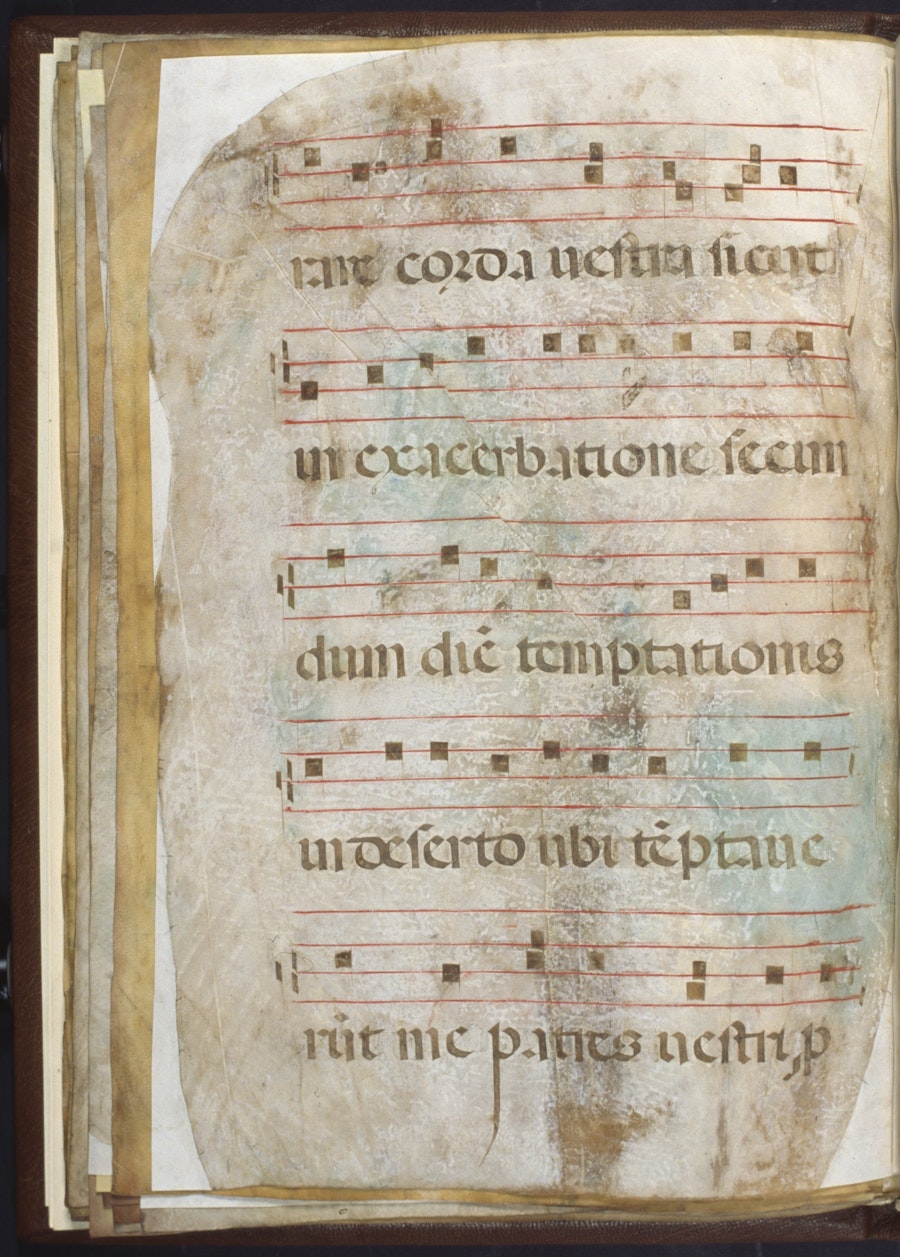 rare corda uestra sicut
in exacerbatione secun
dum diē temptationis
in deserto ubi tēptaue
rūt me patres uestri, p